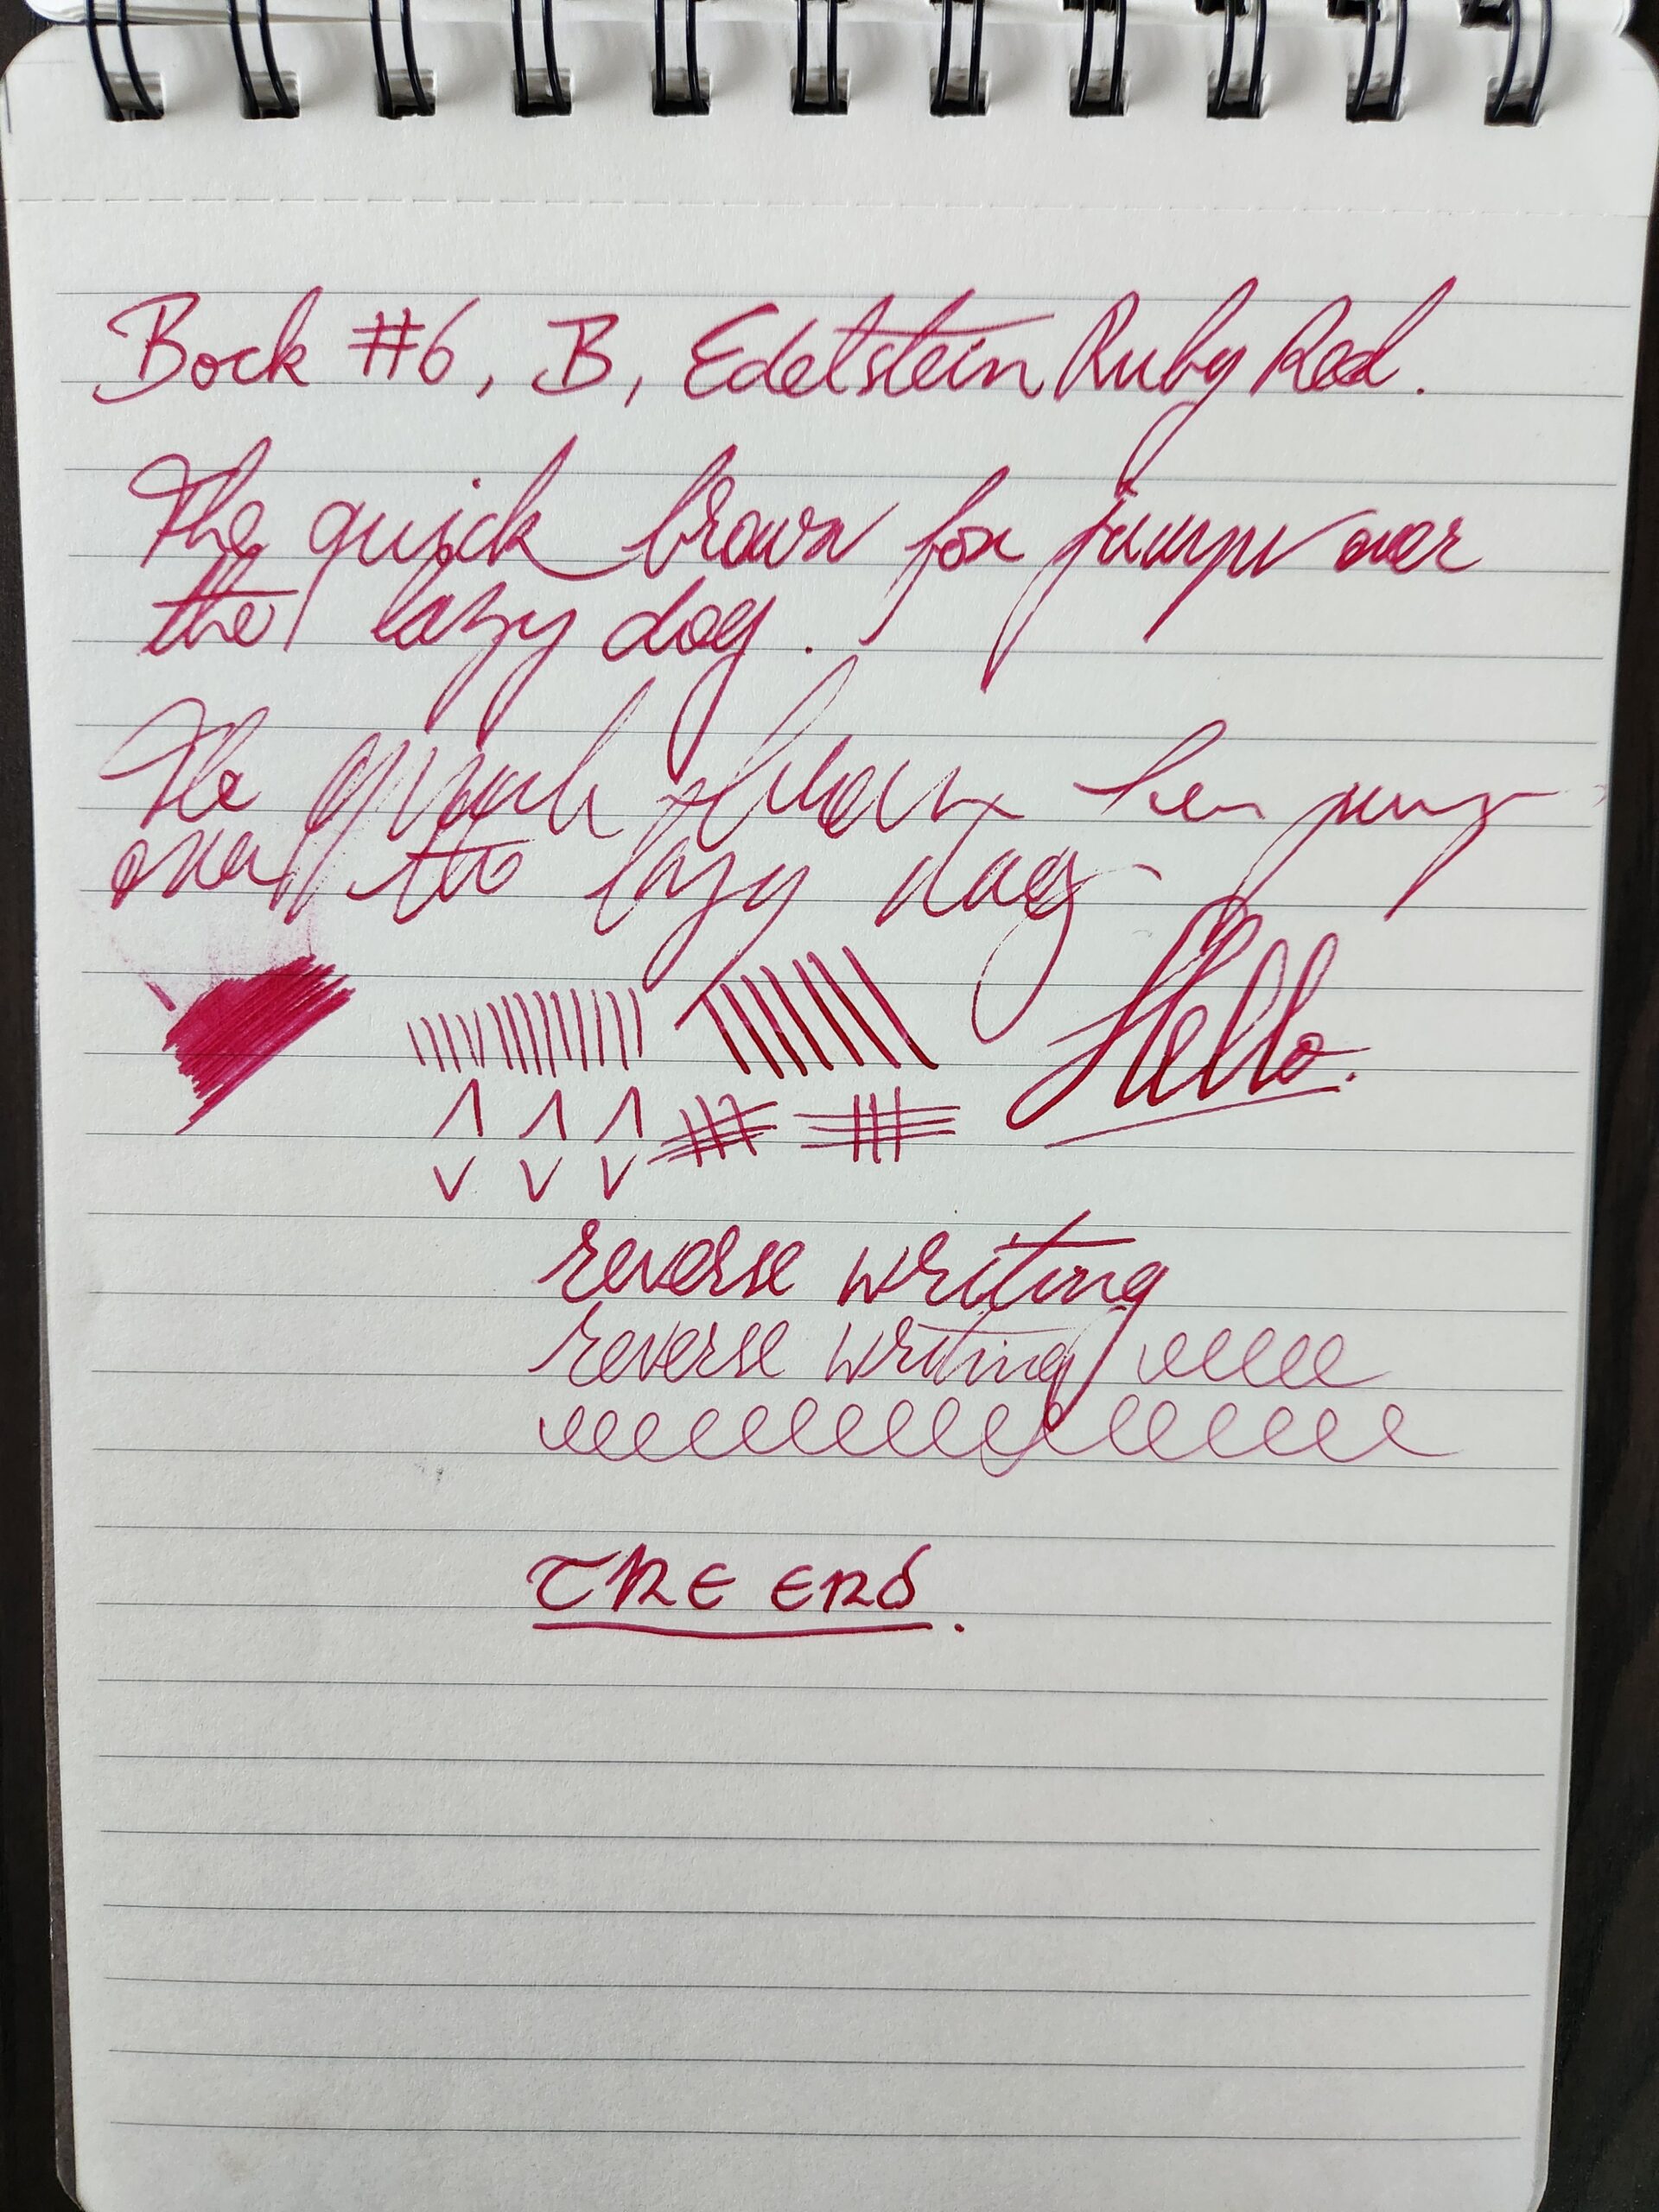 Bock #6, B, Edelstein Ruby Red.
The quick brown fox jumps over
the lazy dog.
The quick brown fox jumps
over the lazy dog.
Hello.
reverse writing
reverse writing
THE END.